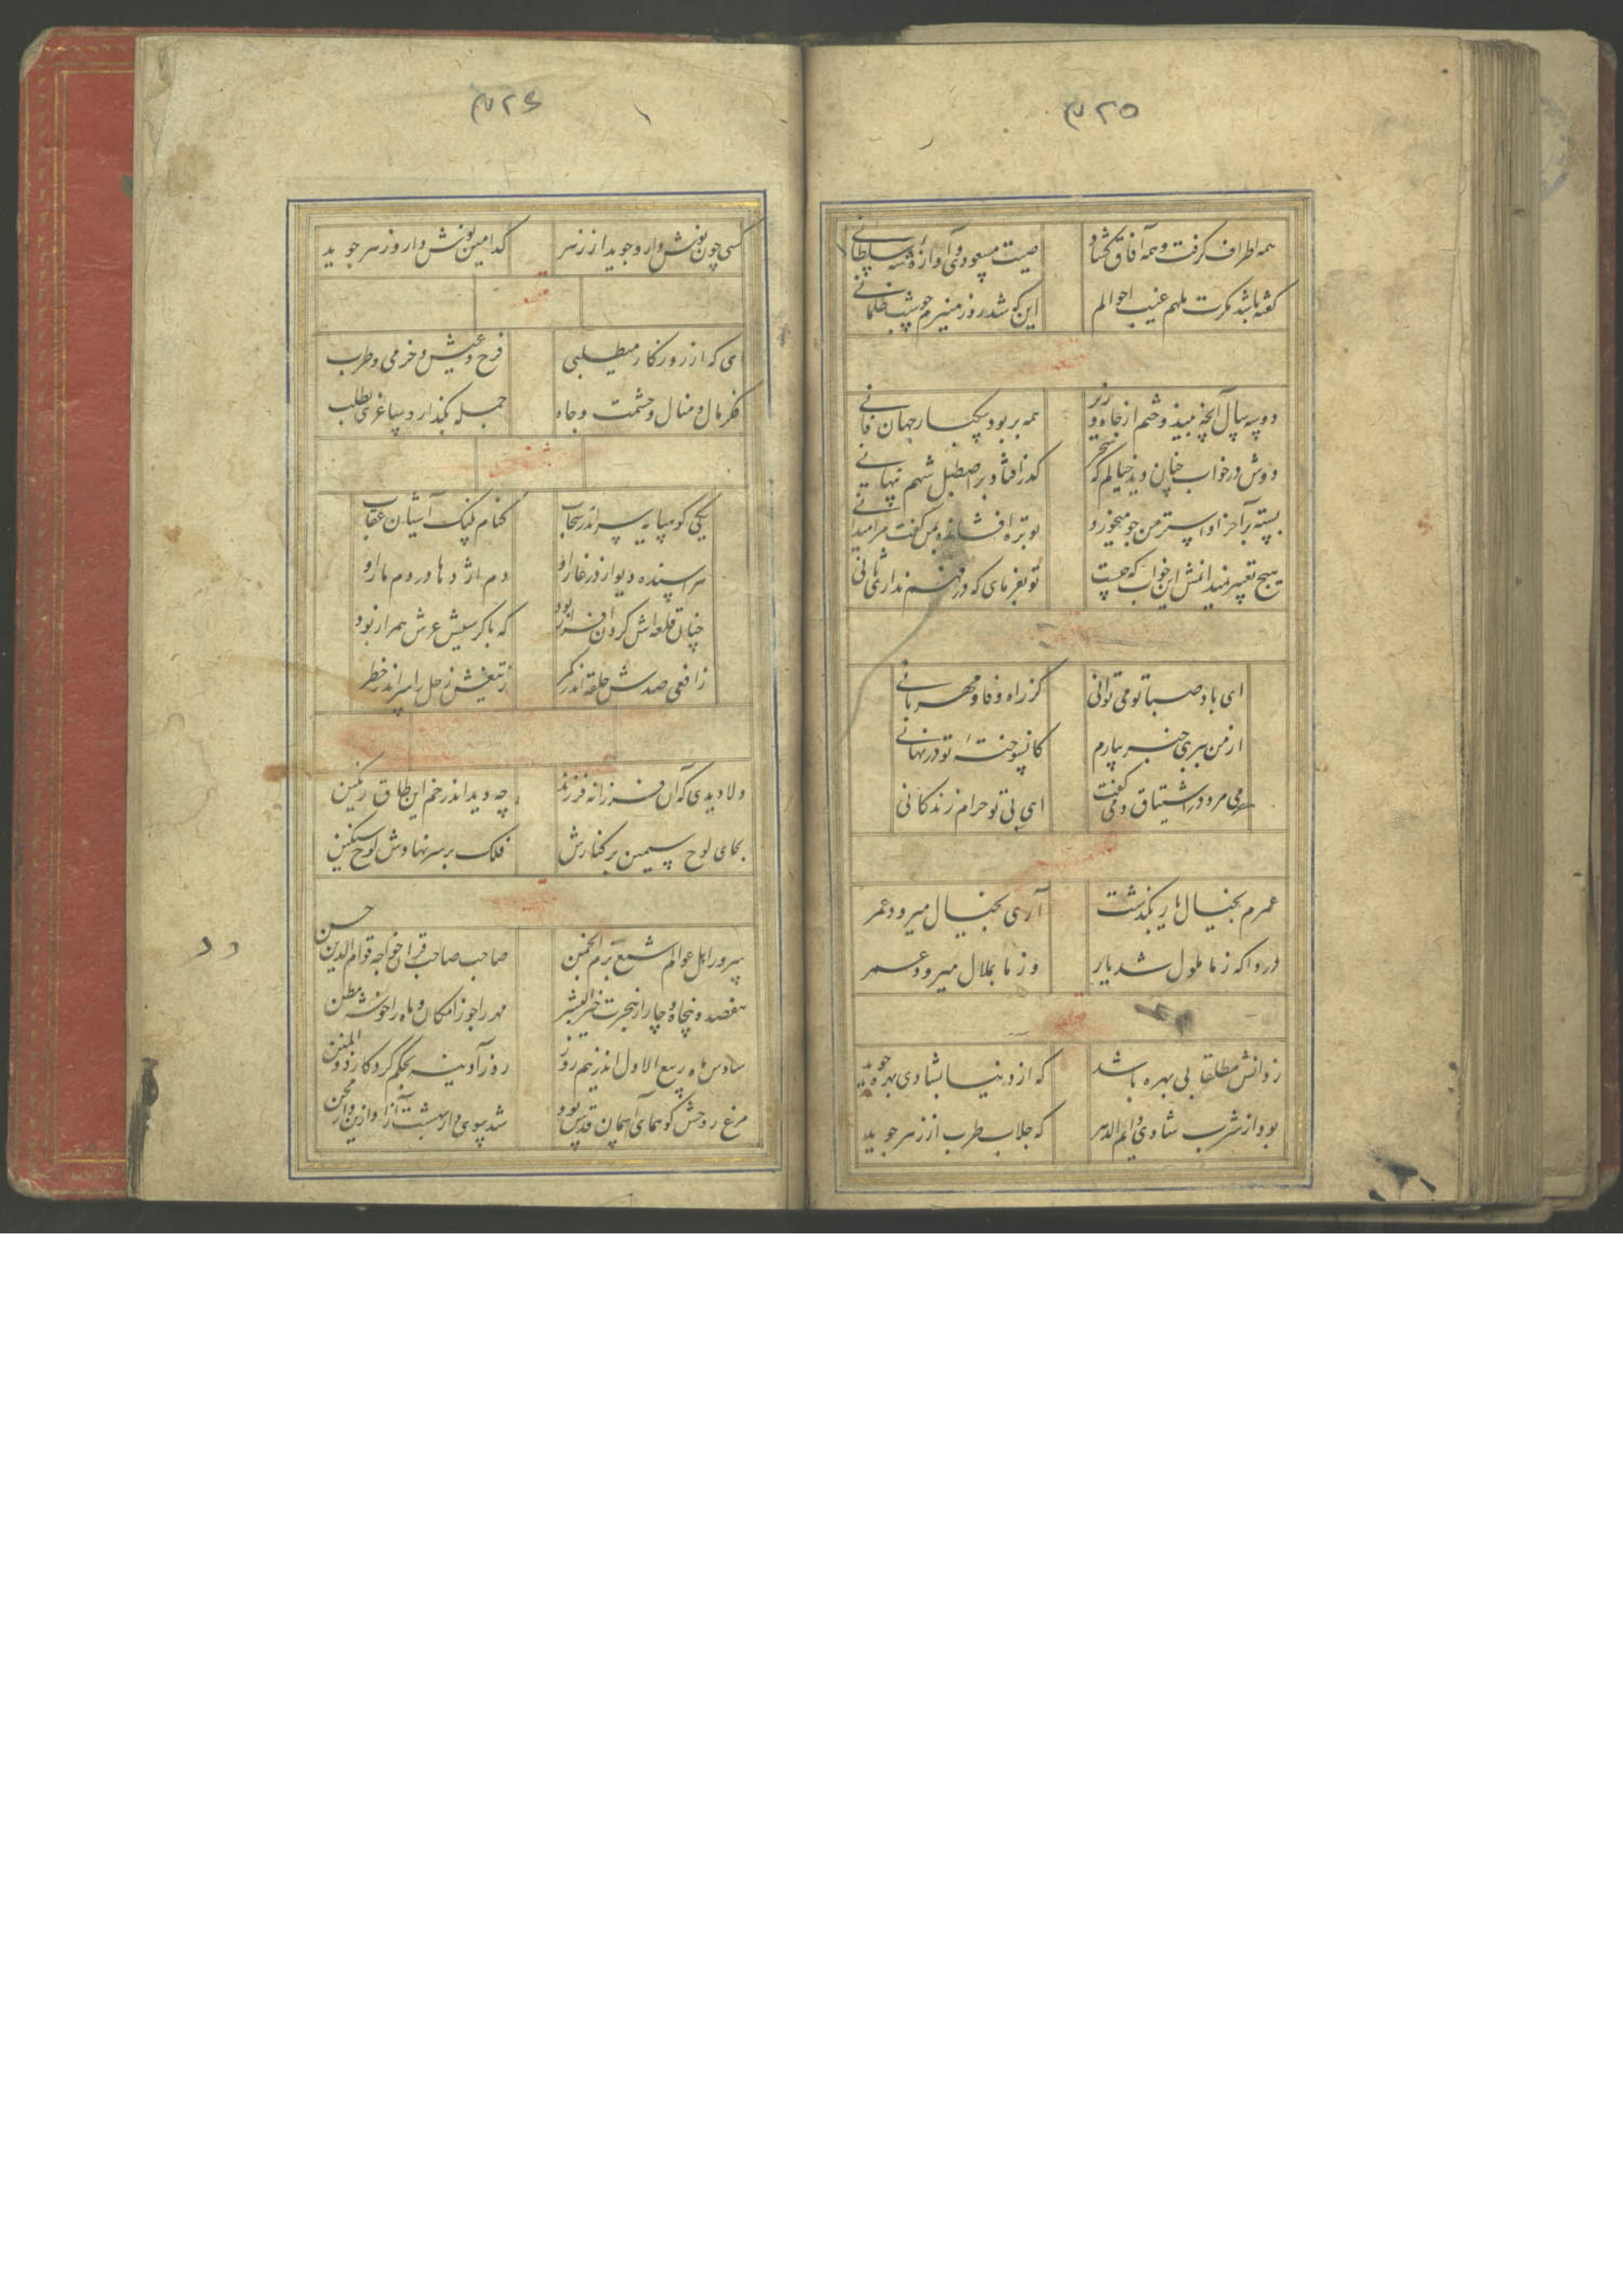 ۳۲۵
همه اطراف گرفت و همه آفاق گشاد صیت مسعودی و آوازه شه سلطانی
گفته باشد مکرت ملهم غیب احوالم این که شد روز منیرم چو شب ظلمانی
دو سه سال آنچه ببیند و ختم از جاه و زر همه بربود بیکبار جهان فانی
دوش در خواب چنان دید خیالم که سحر گذر افتاد بر اصطبل شهم پنهانی
بسته بر آخر او استر من جو میخورد توبره افشاند و بمن گفت مرا میدانی
هیچ تعبیر نمیدانمش این خواب که چیست تو بفرمای که در فهم نداری ثانی
ای باد صبا تو می توانی کز راه وفا و مهربانی
از من ببری خبر بیارم کان سوخته تو در نهانی
می مرد در اشتیاق و می گفت ای بی تو حرام زندگانی
عمرم بخیال یار بگذشت آری بخیال میرود عمر
دردا که ز ما ملول شد یار وز ما بملال میرود عمر
ز دانش مطلقا بی بهره باشد که از دنیا بشادی بهره جوید
بود از شرب شادی دایم الدهر که جلاب طرب از زهر جوید
۳۲۶
کسی چون نوش دارو جوید از زهر کدامین نوش دارو زهر جوید
ای که از روزگار میطلبی فرح و عیش و خرمی و طرب
فکر مال و منال و حشمت و جاه جمله بگذار و ساغری بطلب
یکی کوه پایه سر اندر سحاب کنام پلنگ آشیان عقاب
هراسنده دیو از در غار او دم اژدها در دم مار او
چنان قلعه اش گردن افراز بود که با کرسیش عرش همراز بود
ز افعی صدش حلقه اندر کمر ز تیغش زحل را سر اندر خطر
دلا دیدی که آن فرزانه فرزند چه دید اندر خم این طاق رنگین
بجای لوح سیمین بر کنارش فلک بر سر نهادش لوح سنگین
سرور اهل عوالم شمع بزم انجمن صاحب صاحب قران خواجه قوام الدین حسن
هفصد و پنجاه و چار از هجرت خیر البشر مهر را جوزا مکان و ماه را خوشه مطن
سادس ماه ربیع الاول اندر نیم روز روز آدینه بحکم کردکار ذو المنن
مرغ روحش کو همای آسمان قدس بود شد سوی دار بهشت